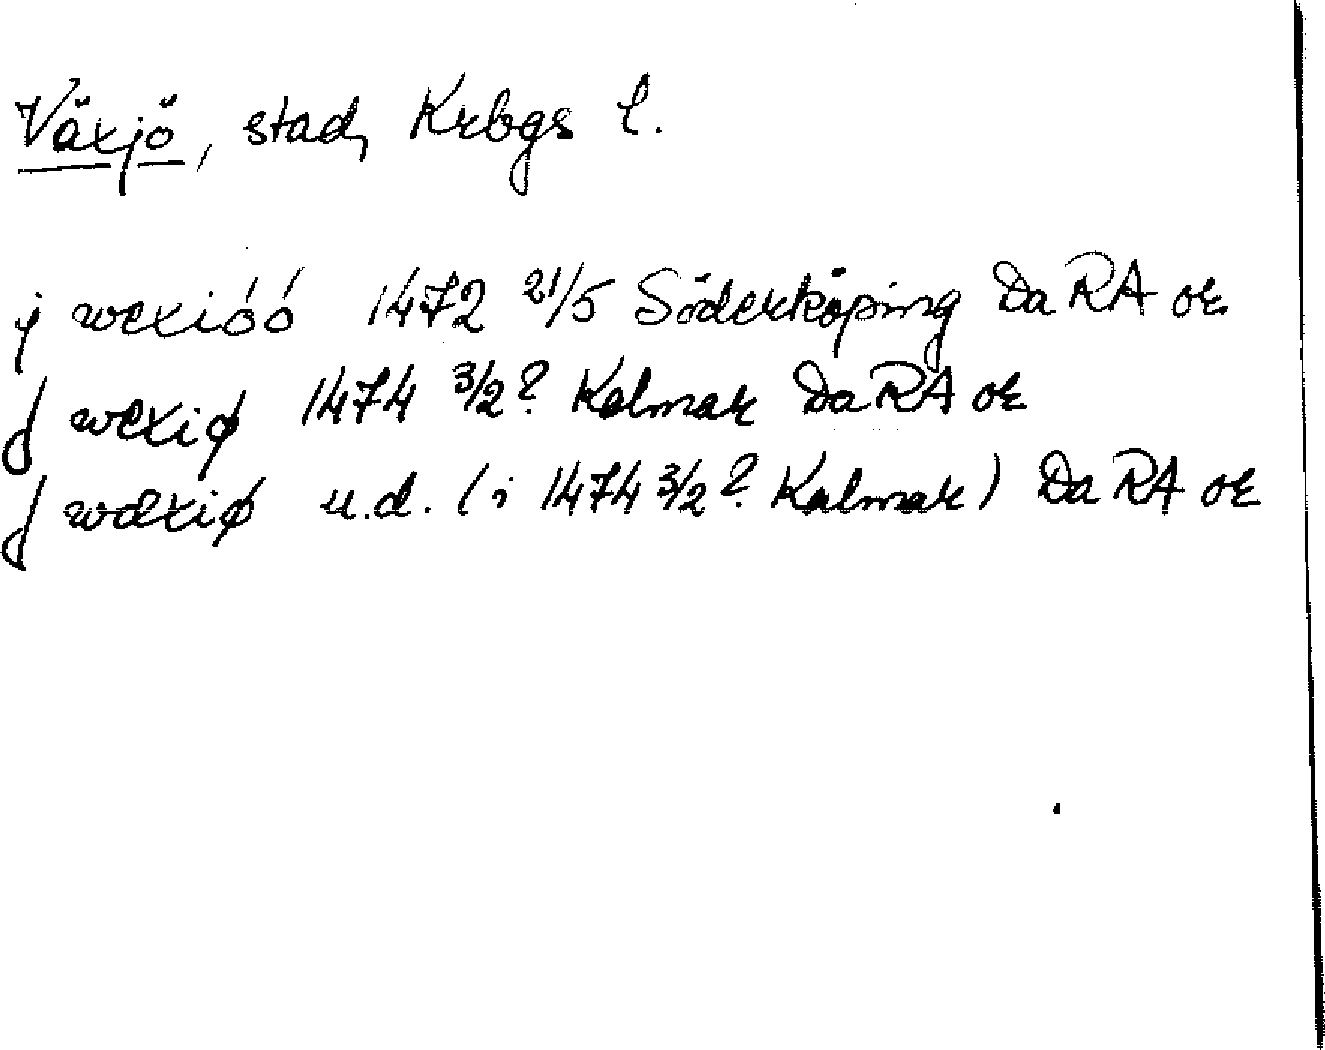 Växjö, stad, Krbgs l.
j wexióó 1472 21/5 Söderköping Da RA or.
J wexiø 1474 3/2? Kalmar Da RA or
J wæxiø u.d. (i 1474 3/2? Kalmar) Da RA or